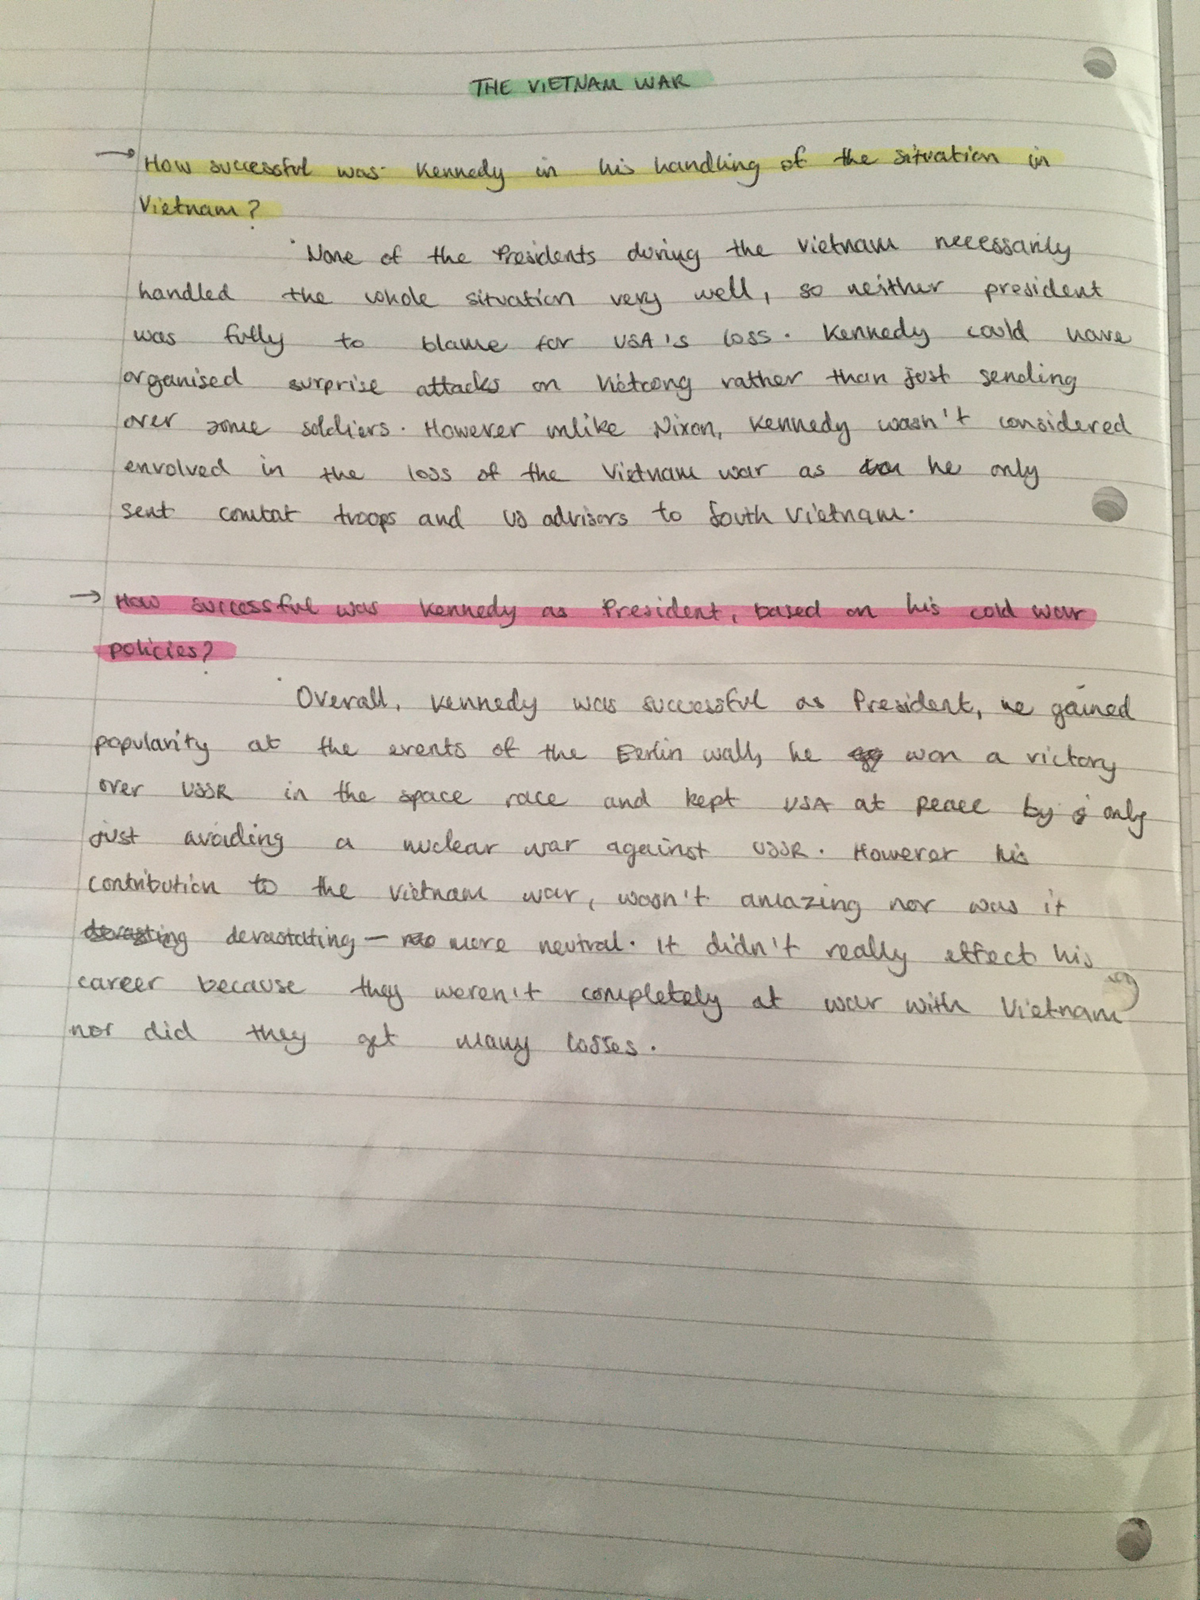 THE VIETNAM WAR
→ How successful was Kennedy in his handling of the situation in
Vietnam?
None of the Presidents during the Vietnam necessarily
handled the whole situation very well, so neither president
was fully to blame for USA's loss. Kennedy could have
organised surprise attacks on Vietcong rather than just sending
over some soldiers. However unlike Nixon, Kennedy wasn't considered
envolved in the loss of the Vietnam war as he only
sent combat troops and US advisors to South Vietnam.
→ How successful was Kennedy as President, based on his cold war
policies?
Overall, Kennedy was successful as President, he gained
popularity at the events of the Berlin wall, he won a victory
over USSR in the space race and kept USA at peace by only
just avoiding a nuclear war against USSR. However his
contribution to the Vietnam war, wasn't amazing nor was it
devastating — more neutral. It didn't really effect his
career because they weren't completely at war with Vietnam
nor did they get many losses.